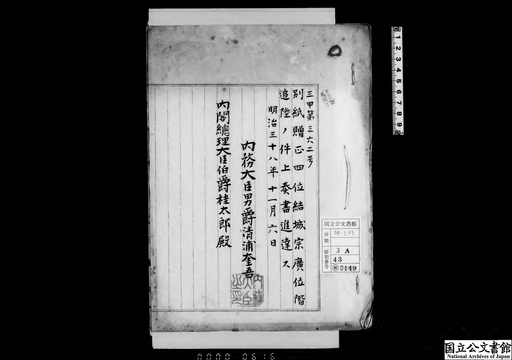 三甲第三六二号
別紙贈正四位結城宗廣位階
追陞ノ件上奏書進達ス
明治三十八年十一月六日
内務大臣男爵清浦奎吾
内閣總理大臣伯爵桂太郎殿
国立公文書館
分類
3 A
43
2149
1 2 3 4 5 6 7 8 9
0000 0616
国立公文書館
National Archives of Japan